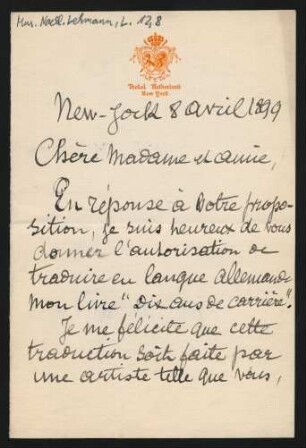 Mus. Nachl. Lehmann, L. 12,8
Hotel Netherland
New York
New-York 8 avril 1899
Chère Madame et amie,
En réponse à votre propo-
sition, je suis heureux de vous
donner l'autorisation de
traduire en langue allemande
mon livre "Dix ans de carrière".
Je me félicite que cette
traduction soit faite par
une artiste telle que vous,